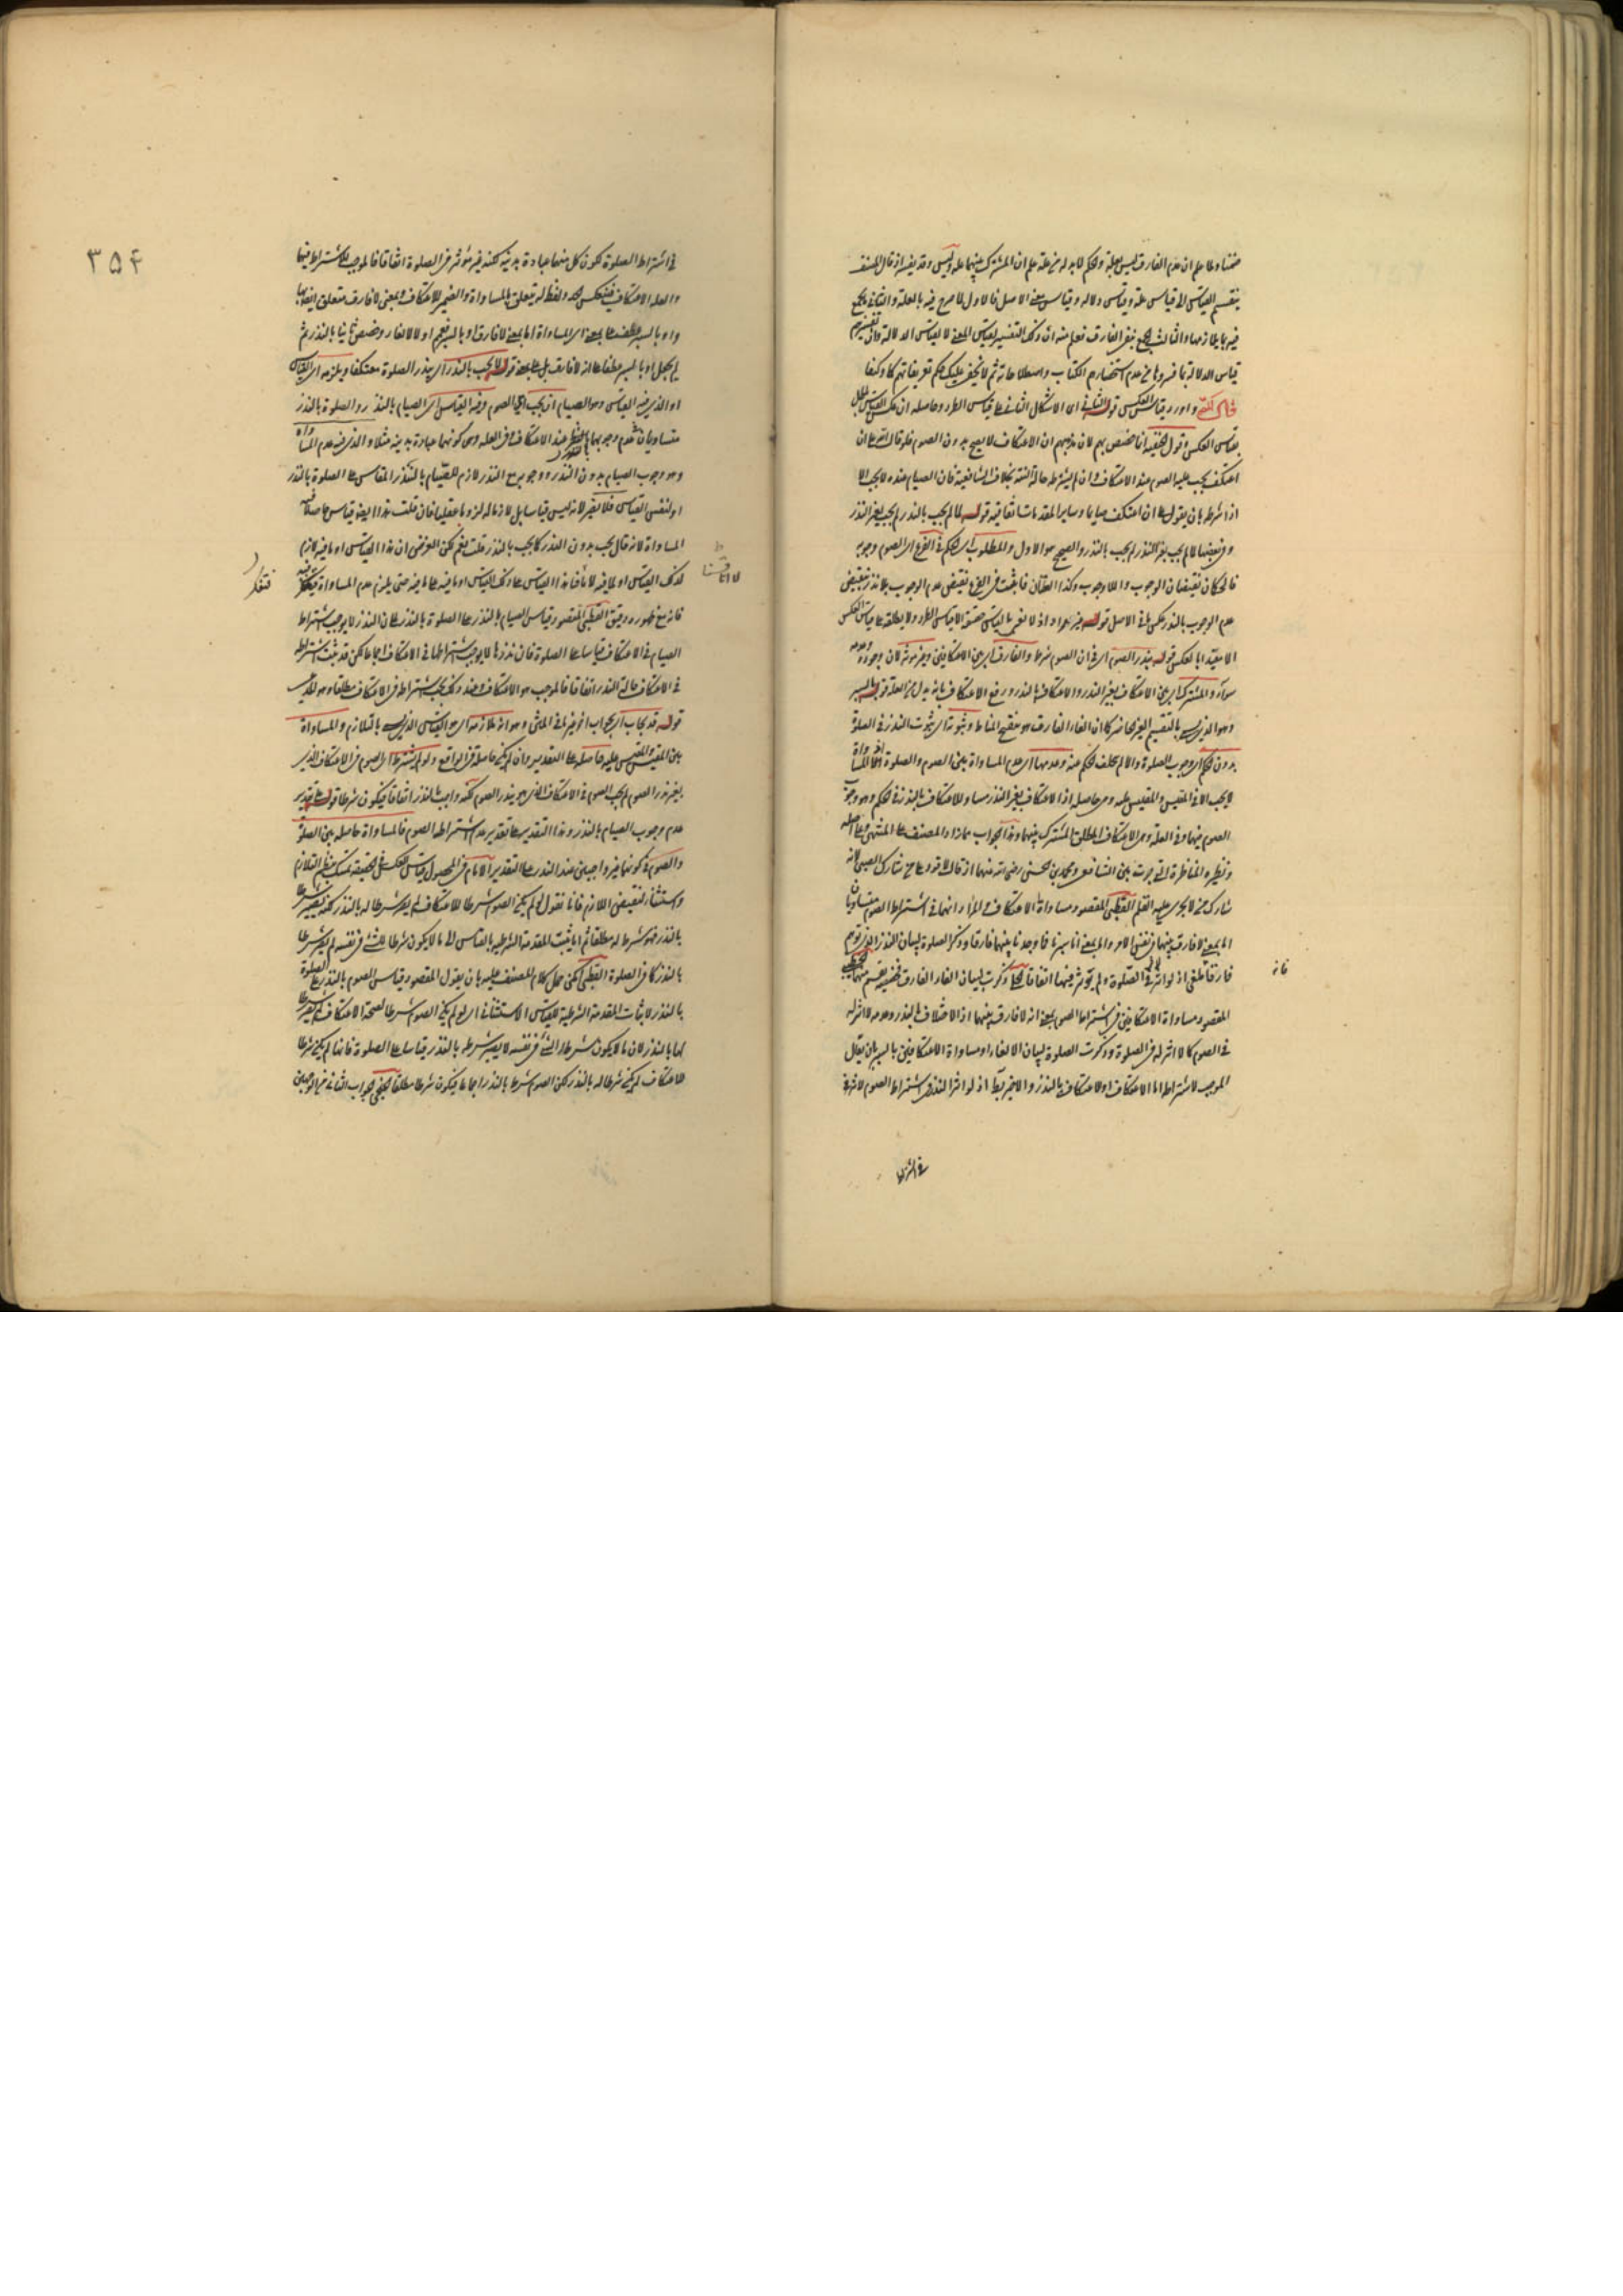 ضمنا ولما علم ان عدم الفارق ليس علة والحكم لا بد له من علة علم ان المشترك بينهما علة وليس وقد يفسر اذ قال المصنف
ينقسم القياس الى قياس علة وقياس دلالة وقياس في معنى الاصل فالاول ما صرح فيه بالعلة والثاني ما يجمع
فيه بما يلازمها والثالث الجمع بنفي الفارق فعلم منه ان ذلك التفسير لقياس المعنى لا لقياس الدلالة وان تفسيرهم
قياس الدلالة بما فسروها من عدم استحضارهم الكتاب واصطلاحاته ثم لا يخفى عليك حكم تعريفاتهم كما وكيفا
قال واورد قياس العكس قوله الثاني اي الاشكال الثاني على قياس الطرد وحاصله ان عكس القياس
بقياس العكس وقول الحنفية انما خصص بهم لان مذهبهم ان الاعتكاف لا يصح بدون الصوم فلو قال لله علي ان
اعتكف يجب عليه الصوم عند الاعتكاف وان لم يشترطه حالة النذر بخلاف الشافعية فان الصيام عنده لا يجب الا
اذا شرطه بان يقول علي ان اعتكف صائما وساير المقدمات اتفاقية قوله لما لم يجب بالنذر لم يجب بغير النذر
وفي بعضها لما لم يجب بغير النذر لم يجب بالنذر والصحيح هو الاول والمطلوب اي الحكم في الفرع اي الصوم وجوبه
فالحكمان نقيضان الوجوب واللاوجوب وكذا العلتان فاثبت في الفرع نقيض عدم الوجوب بعلة نقيض
عدم الوجوب بالنذر عكس ما في الاصل قوله غير مراد اذ لا نعني بالقياس حقيقة الا قياس الطرد ولا يطلق على قياس العكس
الا مقيدا بالعكس قوله بنذر الصوم اي في ان الصوم شرط والفارق اي بين الاعتكافين وغير مؤثر لان وجوده وعدمه
سواء والمشترك اي بين الاعتكاف بغير النذر والاعتكاف بالنذر ورفع الاعتكاف بانه بدل من العلة قوله بالسبر
وهو الذي يسمى بالتقسيم الغير الحاصر كما ان الغاء الفارق هو تنقيح المناط وثبوته اي ثبوت النذر في الصلوة
بدون الحكم اي وجوب الصلوة والا لم يتخلف الحكم عنه وعدمها اي عدم المساواة بين الصوم والصلوة اذ المساواة
لا يجب الا في المقيس والمقيس عليه وهي حاصلة اذ الاعتكاف بغير النذر مساو للاعتكاف بالنذر في الحكم وهو وجوب
الصوم فيهما وفي العلة وهي الاعتكاف المطلق المشترك بينهما وهذا الجواب مما زاد المصنف على المنتهى
ونظيره المناظرة التي جرت بين الشافعي ومحمد بن الحسن رضي الله عنهما اذ قال لا قود على من شارك الصبي لانه
شارك من لا يجري عليه القلم القطبي المقصود مساواة الاعتكاف والمراد انهما في اشتراط الصوم متساويان
اما بمعنى لا فارق بينهما في نفس الامر والا بمعنى انا سبرنا فما وجدنا بينهما فارقا وذكر الصلوة لبيان النذر الذي توهم
فارقا ملغى اذ لو اثر لاثر في الصلوة ولم يؤثر فيهما اتفاقا وذكرت لبيان الغاء الفارق
المقصود مساواة الاعتكافين في اشتراط الصوم بمعنى انه لا فارق بينهما اذ الاختلاف بالنذر وعدمه لا اثر له
في الصوم كما لا اثر له في الصلوة وذكرت الصلوة لبيان الالغاء او مساواة الاعتكافين بالسبر بان يقال
الموجب لاشتراط اما الاعتكاف او الاعتكاف بالنذر والاخير باطل اذ لو اثر النذر في اشتراط الصوم لاثر
في اشتراط
فانه
٣٥٤
في اشتراط الصلوة لكون كل منهما عبادة بدنية لكنه غير مؤثر في الصلوة اتفاقا فالموجب للاشتراط فيهما
والعلة الاعتكاف فينعكس ولفظ له يتعلق بالمساواة والضمير للاعتكاف وبمعنى لا فارق متعلق ايضا بها
واو بالسبر عطف على بمعنى اي المساواة اما بمعنى لا فارق او بالسبر فعمم اولا الالغاء وخصص ثانيا بالنذر ثم
لم يجعل او بالسبر عطفا على انه لا فارق بل على بمعنى قوله لا يجب بالنذر اي بنذر الصلوة معتكفا ويلزمه اي القياس
او الذي فيه القياس وهو الصيام ان يجب اي الصوم وفيه القياس اي الصيام بالنذر والصلوة بالنذر
متساويان في عدم وجوبهما بالنظر عند الاعتكاف وفي العلة وهي كونهما عبادة بدنية مثلا والذي فيه عدم المساواة
وهو وجوب الصيام بدون النذر ووجوبه مع النذر لازم للصيام بالنذر المقاس على الصلوة بالنذر
او لنفس القياس فلا تغير لانه ليس قياسا بل لازما له لزوما عقليا فان قلت هذا ايضا قياس
المساواة لانه قال يجب بدون النذر كما يجب بالنذر قلت نعم لكن الغرض ان هذا القياس او ما فيه لازم
لذلك القياس او لما فيه لا انا قسنا هذا القياس على ذلك القياس او ما فيه على ما فيه حتى يلزم عدم المساواة
فانه مع ظهوره دقيق القطبي المقصود قياس الصيام بالنذر على الصلوة بالنذر على ان النذر لا يوجب اشتراط
الصيام في الاعتكاف قياسا على الصلوة فان نذرها لا يوجب اشتراطها في الاعتكاف اجماعا لكن قد ثبت اشتراطه
في الاعتكاف حالة النذر اتفاقا فالموجب هو الاعتكاف وعند ذلك يجب اشتراطه في الاعتكاف مطلقا وهو المدعى
قوله قد يجاب اي بجواب اخر غير ما في المتن وهو انه ملازمة اي هو القياس الذي يسمى بالتلازم والمساواة
بين المقيس والمقيس عليه حاصلة على التقدير وان لم يكن حاصلة في الواقع ولو لم يشترط اي الصوم في الاعتكاف الذي
بغير نذر الصوم لم يجب الصوم في الاعتكاف الذي هو بنذر الصوم لكنه واجب بالنذر اتفاقا فيكون شرطا قوله على تقدير
عدم وجوب الصيام بالنذر وهذا التقدير على تقدير عدم اشتراط الصوم فالمساواة حاصلة بين الصلوة
والصوم في كونهما غير واجبين عند النذر على التقدير الامام في المحصول قياس العكس في الحقيقة تمسك بنظم التلازم
واستثناء نقيض اللازم فانا نقول لو لم يكن الصوم شرطا للاعتكاف لم يصر شرطا له بالنذر لكنه يصير شرطا
بالنذر فهو شرط له مطلقا ثم اثبت المقدمة الشرطية بالقياس الى ما لا يكون شرطا للشئ في نفسه لم يصر شرطا
بالنذر كما في الصلوة القطبي يمكن حمل كلام المصنف عليه بان يقول المقصود قياس الصوم بالنذر على الصلوة
بالنذر لاثبات المقدمة الشرطية للقياس الاستثنائي اي لو لم يكن الصوم شرطا لصحة الاعتكاف لم يصر شرطا
لها بالنذر لان ما لا يكون شرطا للشئ في نفسه لا يصير شرطه بالنذر قياسا على الصلوة فانها لم يكن شرطا
للاعتكاف لم يكن شرطا له بالنذر لكن الصوم شرط بالنذر اجماعا فيكون شرطا مطلقا الجواب الثاني من الوجهين
لا انا قسنا
فتفكر